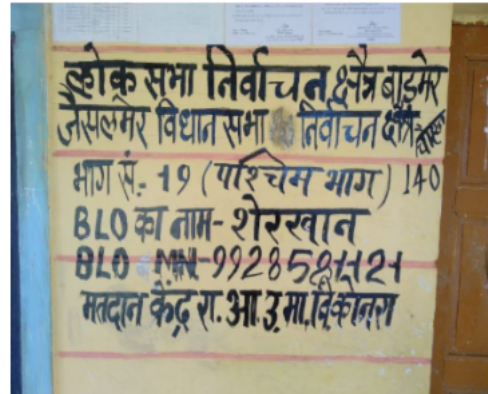 लोक सभा निर्वाचन क्षैत्र बाड़मेर
जैसलमेर विधान सभा निर्वाचन क्षैत्र
भाग सं.- 19 (पश्चिम भाग) 140
BLO का नाम- शेरखान
BLO MNL-9928581121
मतदान केंद्र रा. आ. उ. मा. वि. कोनरा